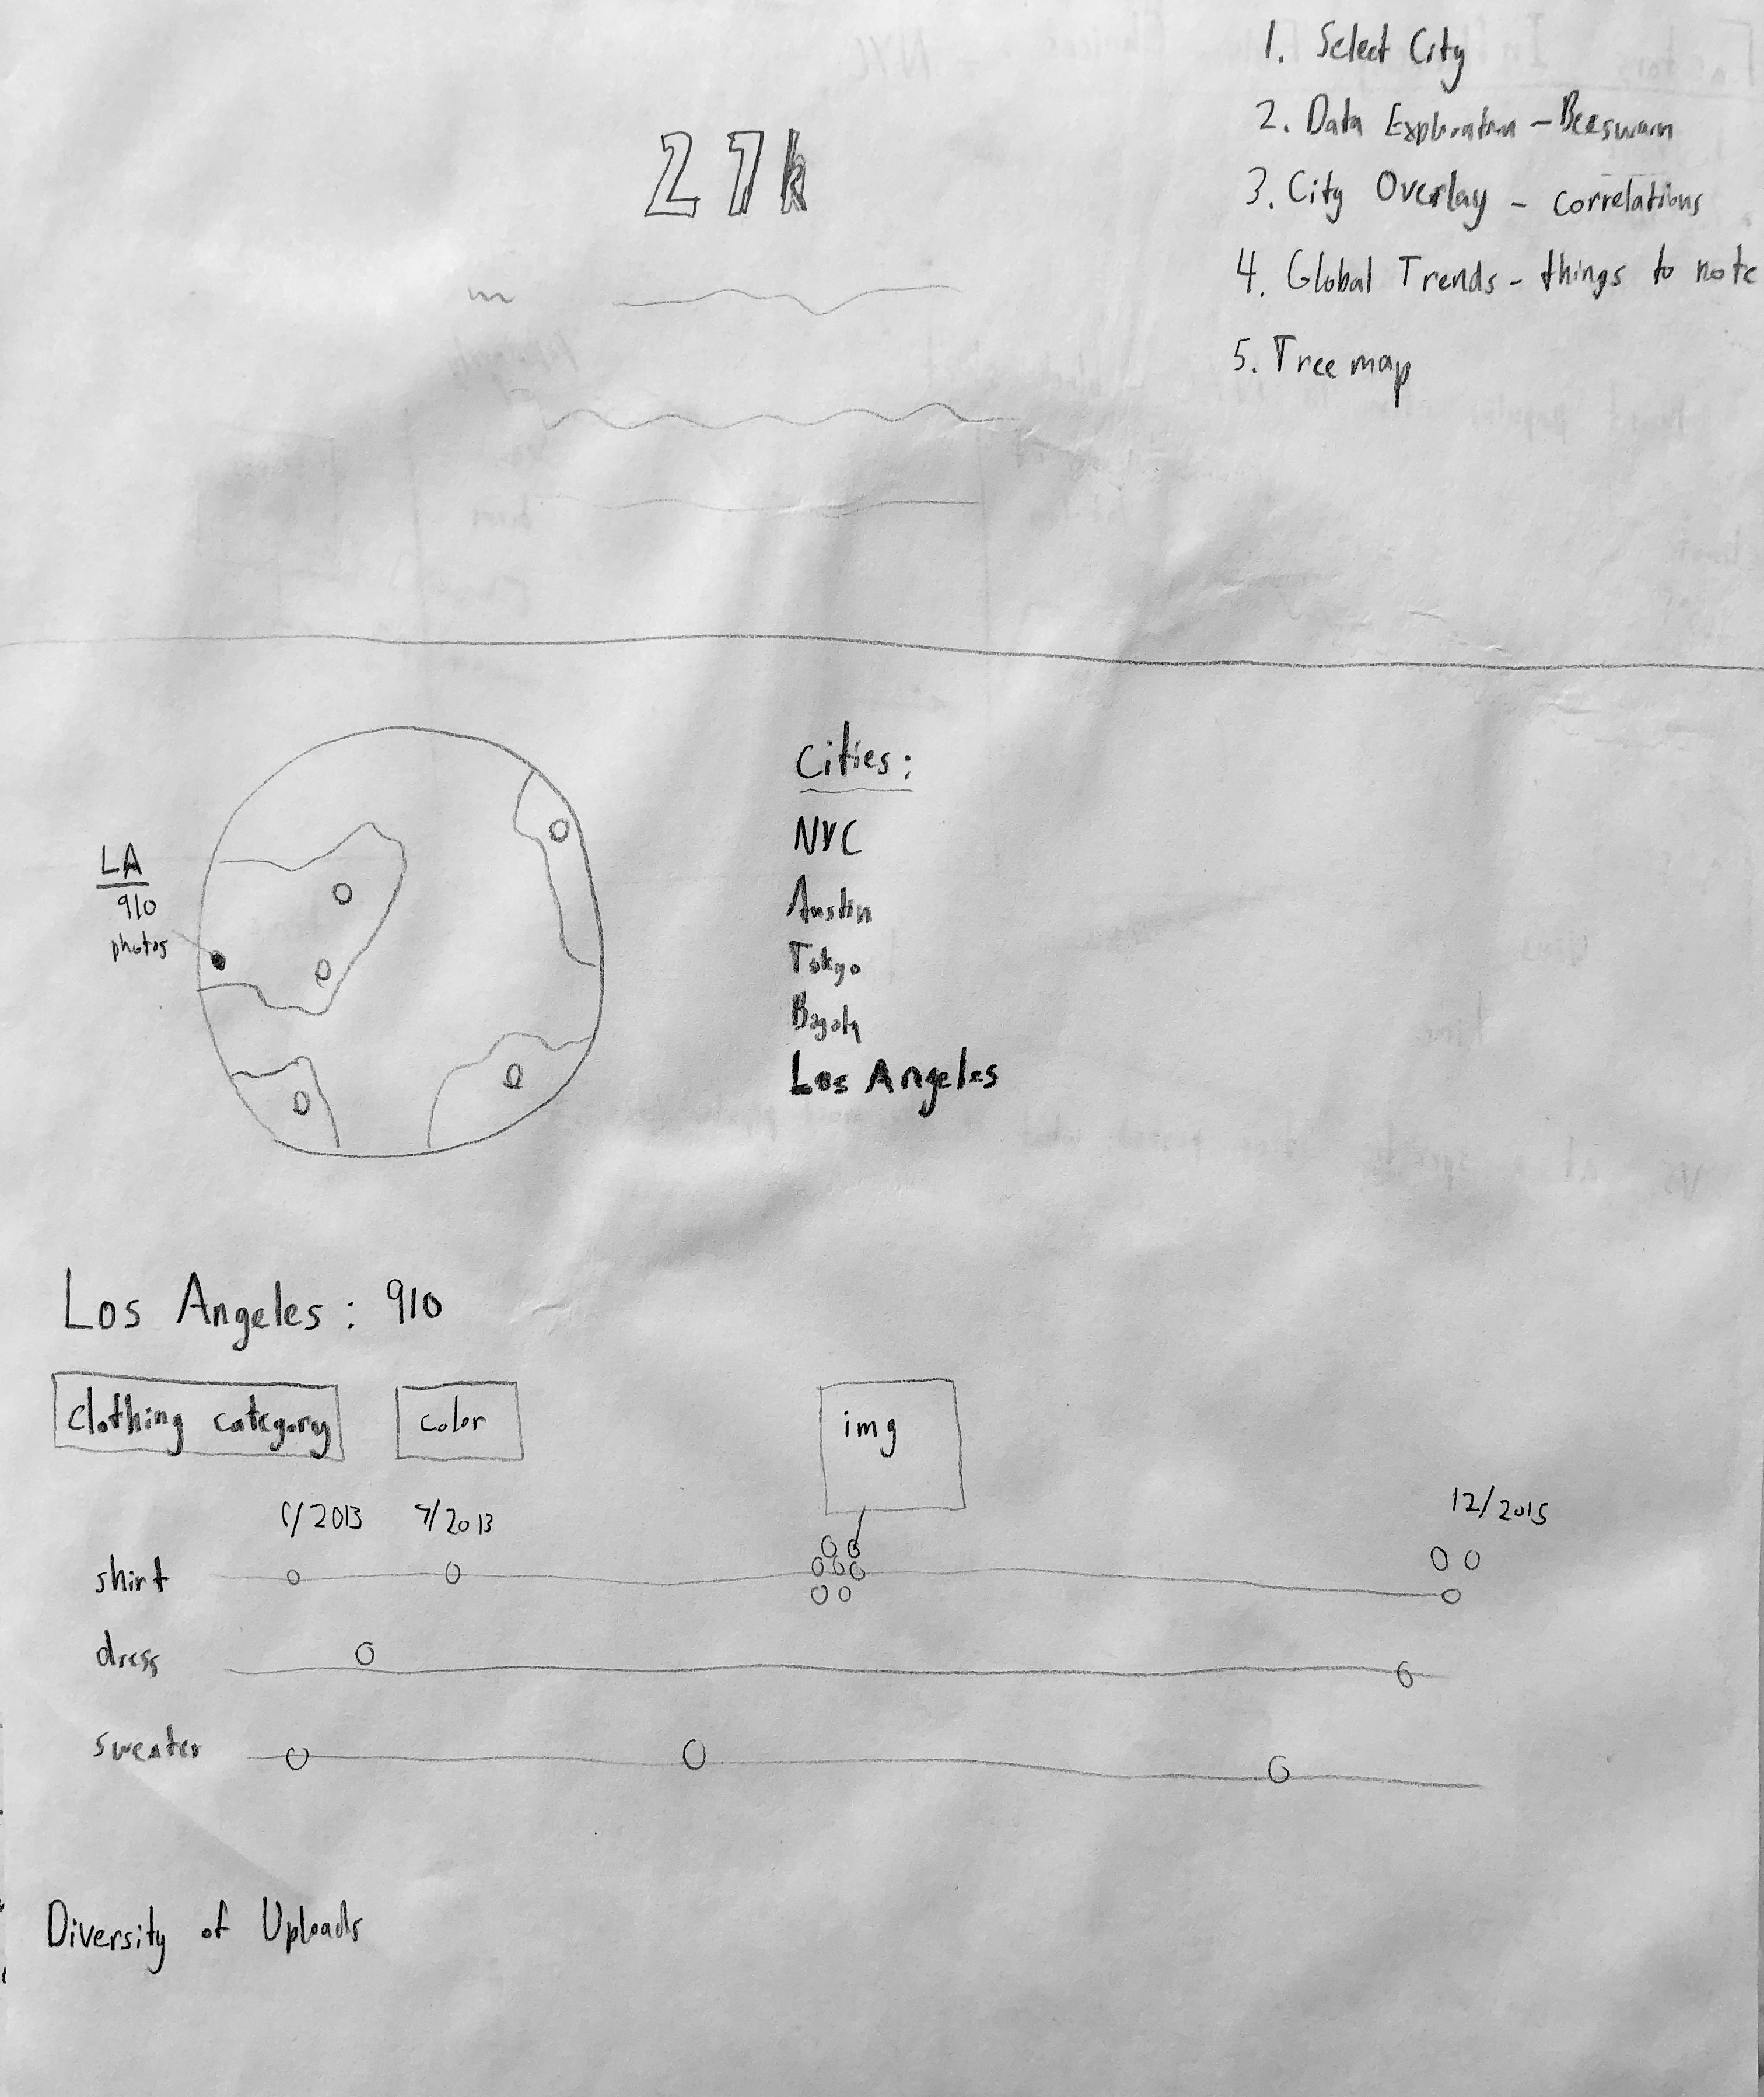 27k
1. Select City
2. Data Exploration - Beeswarm
3. City Overlay - correlations
4. Global Trends - things to note
5. Tree map
LA
910
photos
Cities:
NYC
Austin
Tokyo
Bogota
Los Angeles
Los Angeles: 910
clothing category
color
img
1/2013 7/2013 12/2015
shirt
dress
sweater
Diversity of Uploads